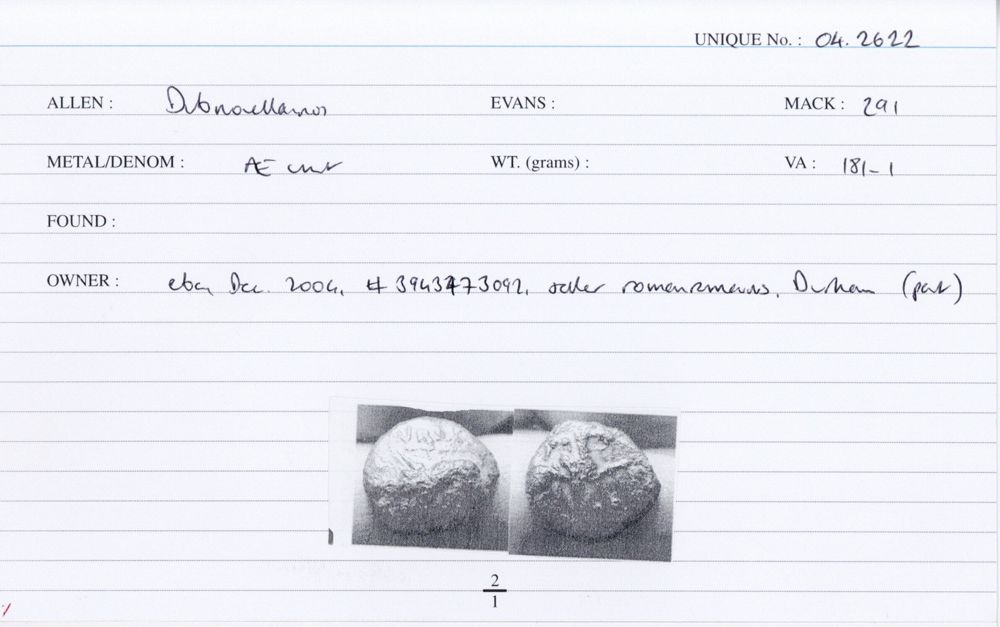 UNIQUE No. : 04.2622
ALLEN : Dubnovellaunos EVANS : MACK : 291
METAL/DENOM : Æ unit WT. (grams) : VA : 181-1
FOUND :
OWNER : ebay Dec. 2004, # 3943773092, seller Durham (part)
2
1